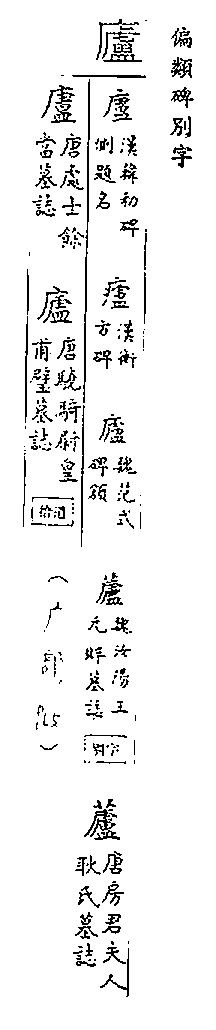 偏類碑別字
廬
廬 漢韓勑碑側題名
廬 漢衡方碑
廬 魏范式碑額
廬 唐處士餘當墓誌
廬 唐驍騎尉皇甫璧墓誌
蘆 魏汝陽王元䀢墓誌
（广部
蘆 唐房君夫人耿氏墓誌